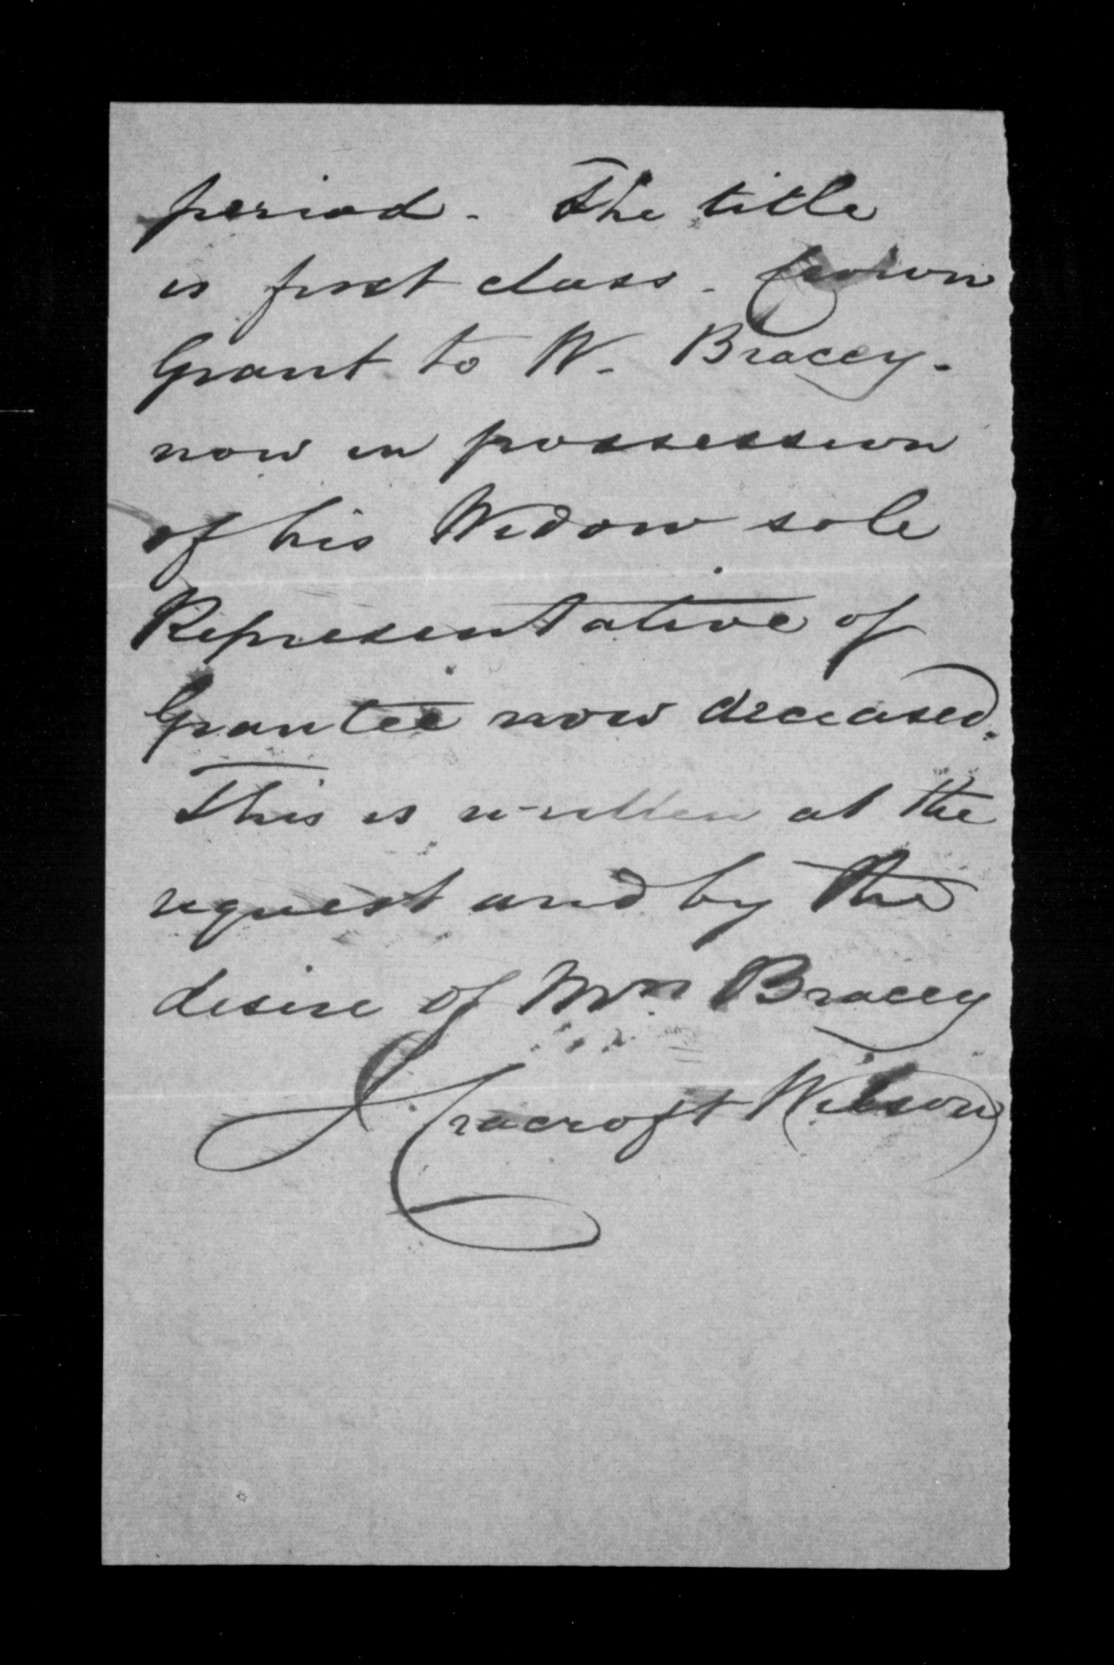 period. The title
is first class. Crown
Grant to W. Bracey.
now in possession
of his Widow sole
Representative of
Grantee now deceased.
This is written at the
request and by the
desire of Mrs Bracey
J Cracroft Wilson